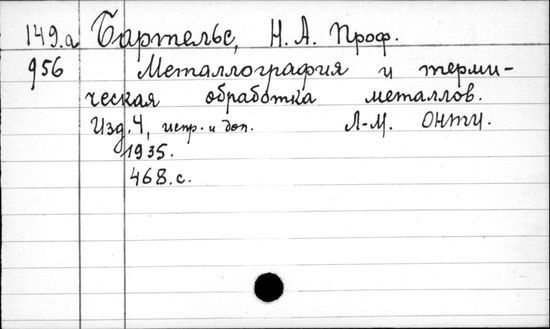 149.а Бартельс, Н. А. Проф.
956 Металлография и терми-
ческая обработка металлов.
Изд. 4, испр. и доп. Л-М. ОНТИ.
1935.
468.с.